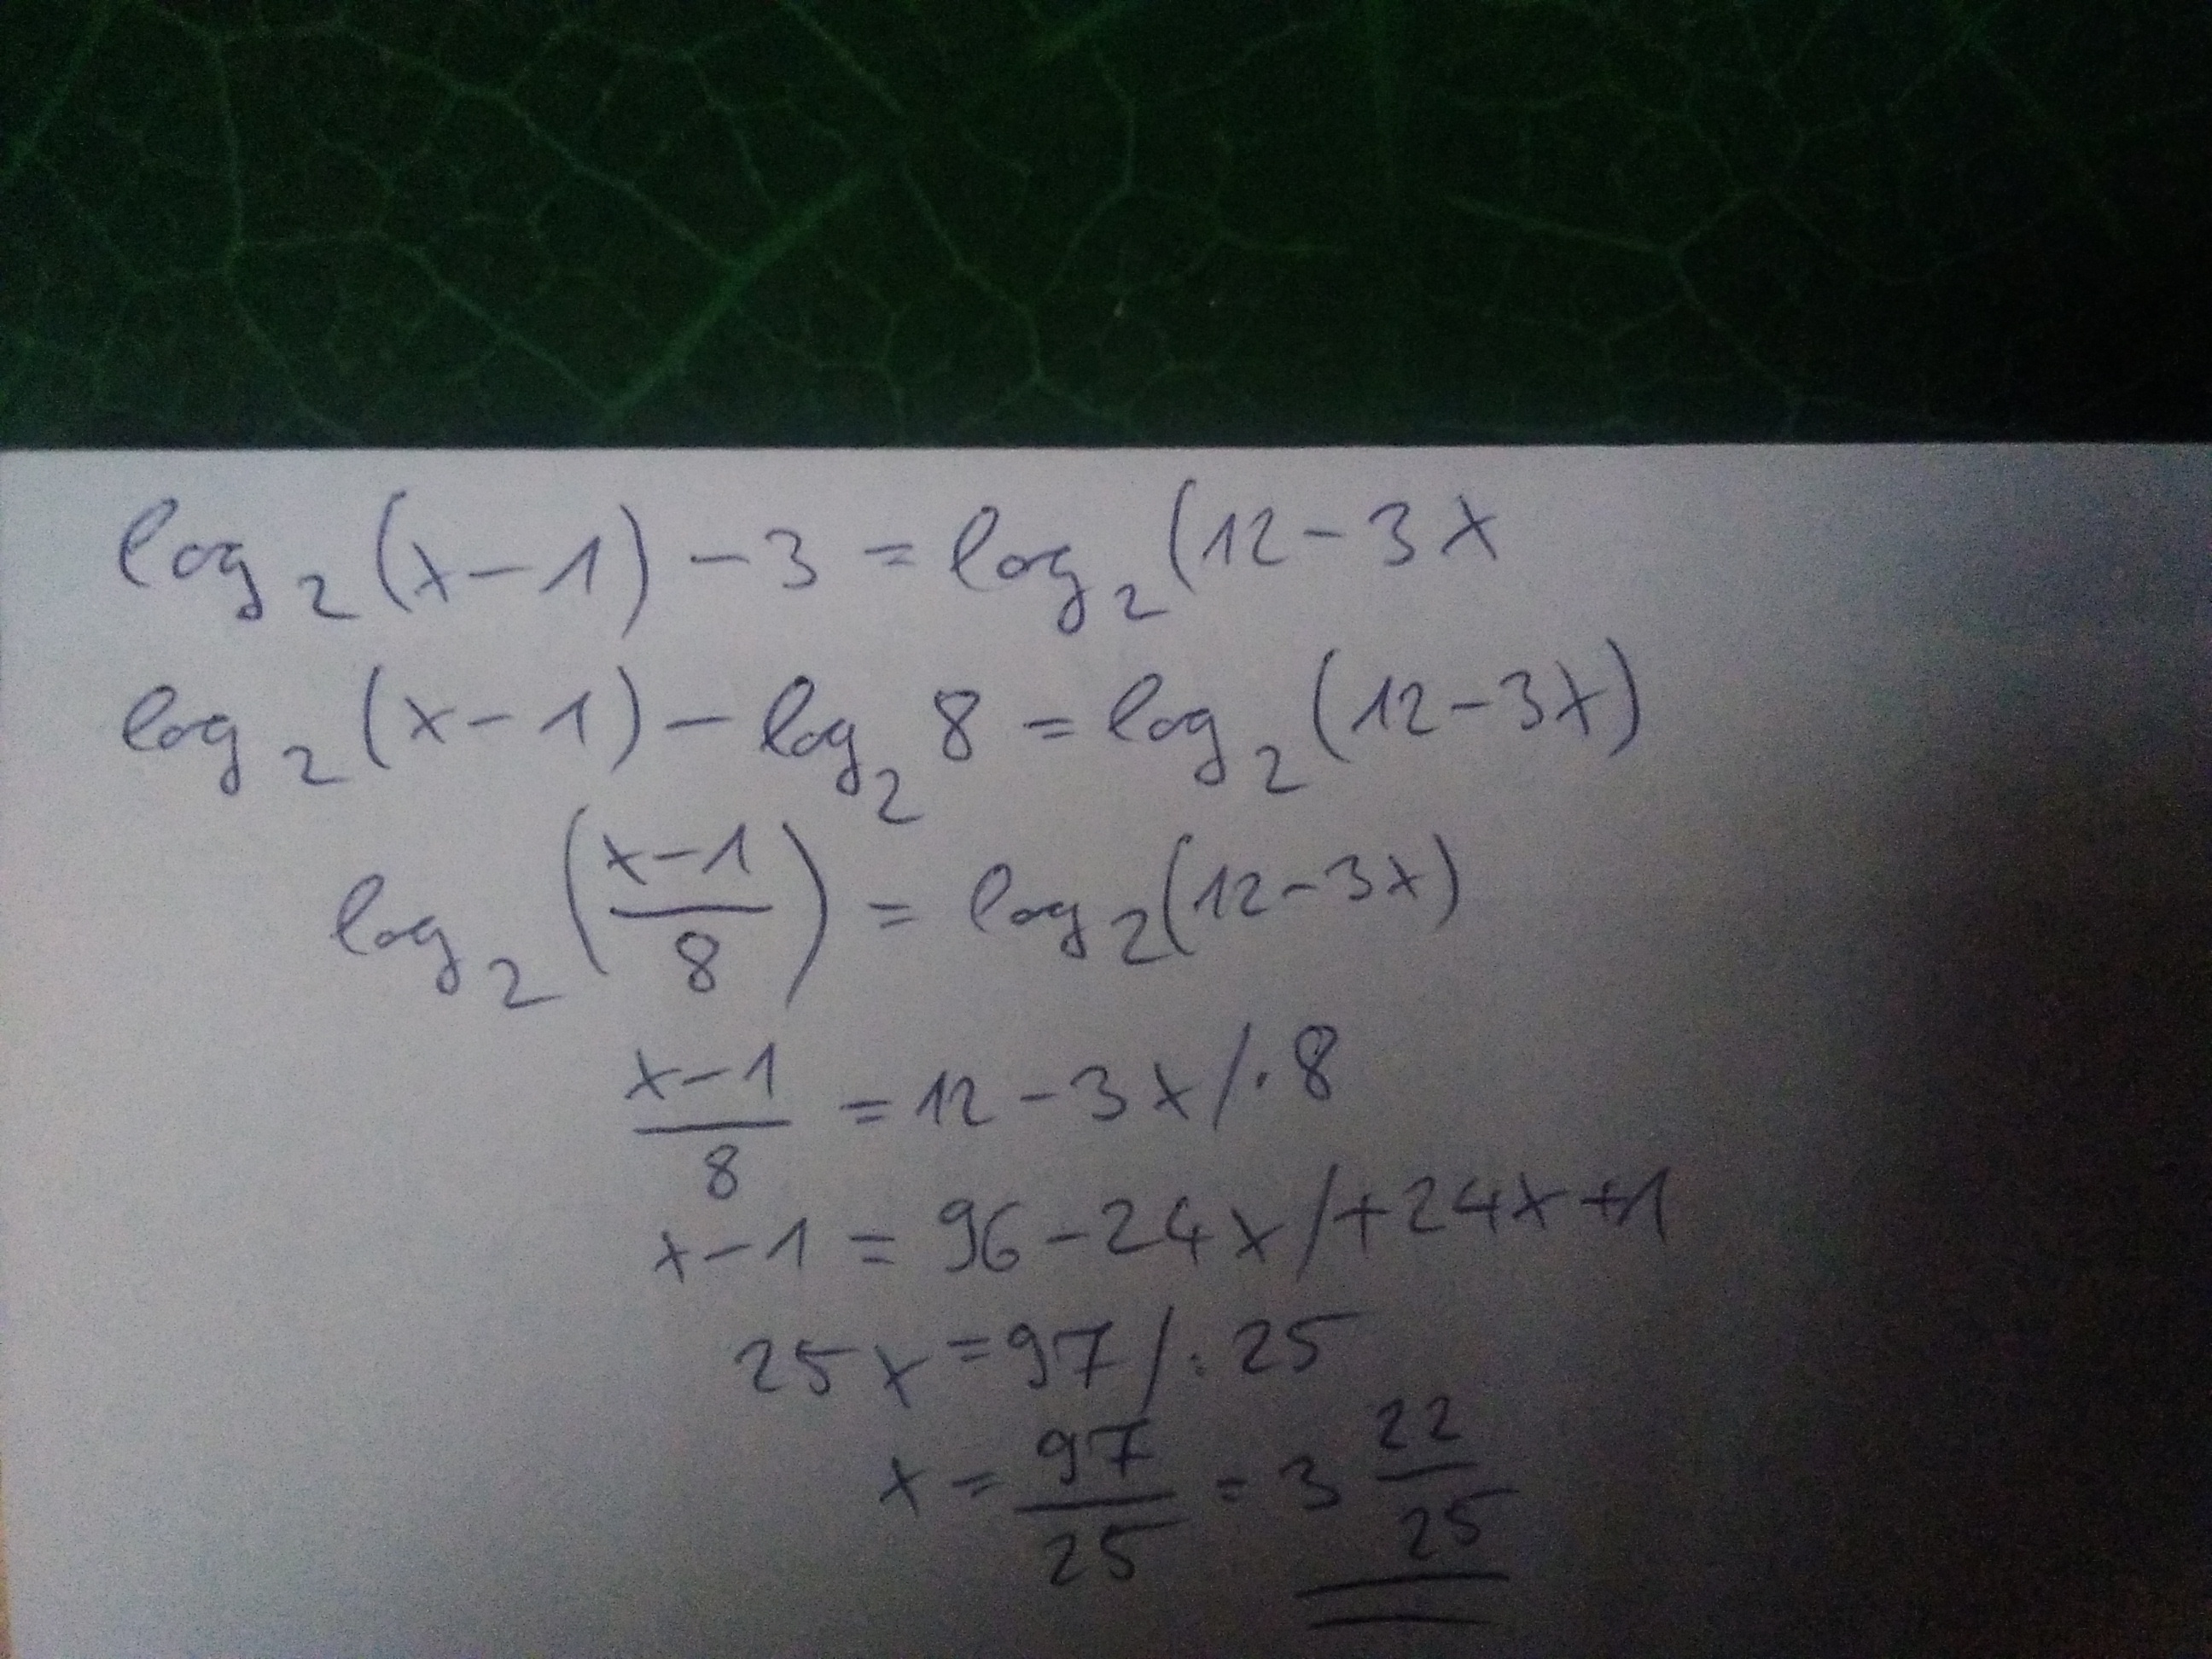 log₂(x-1)-3=log₂(12-3x
log₂(x-1)-log₂8=log₂(12-3x)
log₂((x-1)/8)=log₂(12-3x)
(x-1)/8=12-3x/·8
x-1=96-24x/+24x+1
25x=97/:25
x=97/25=3 22/25